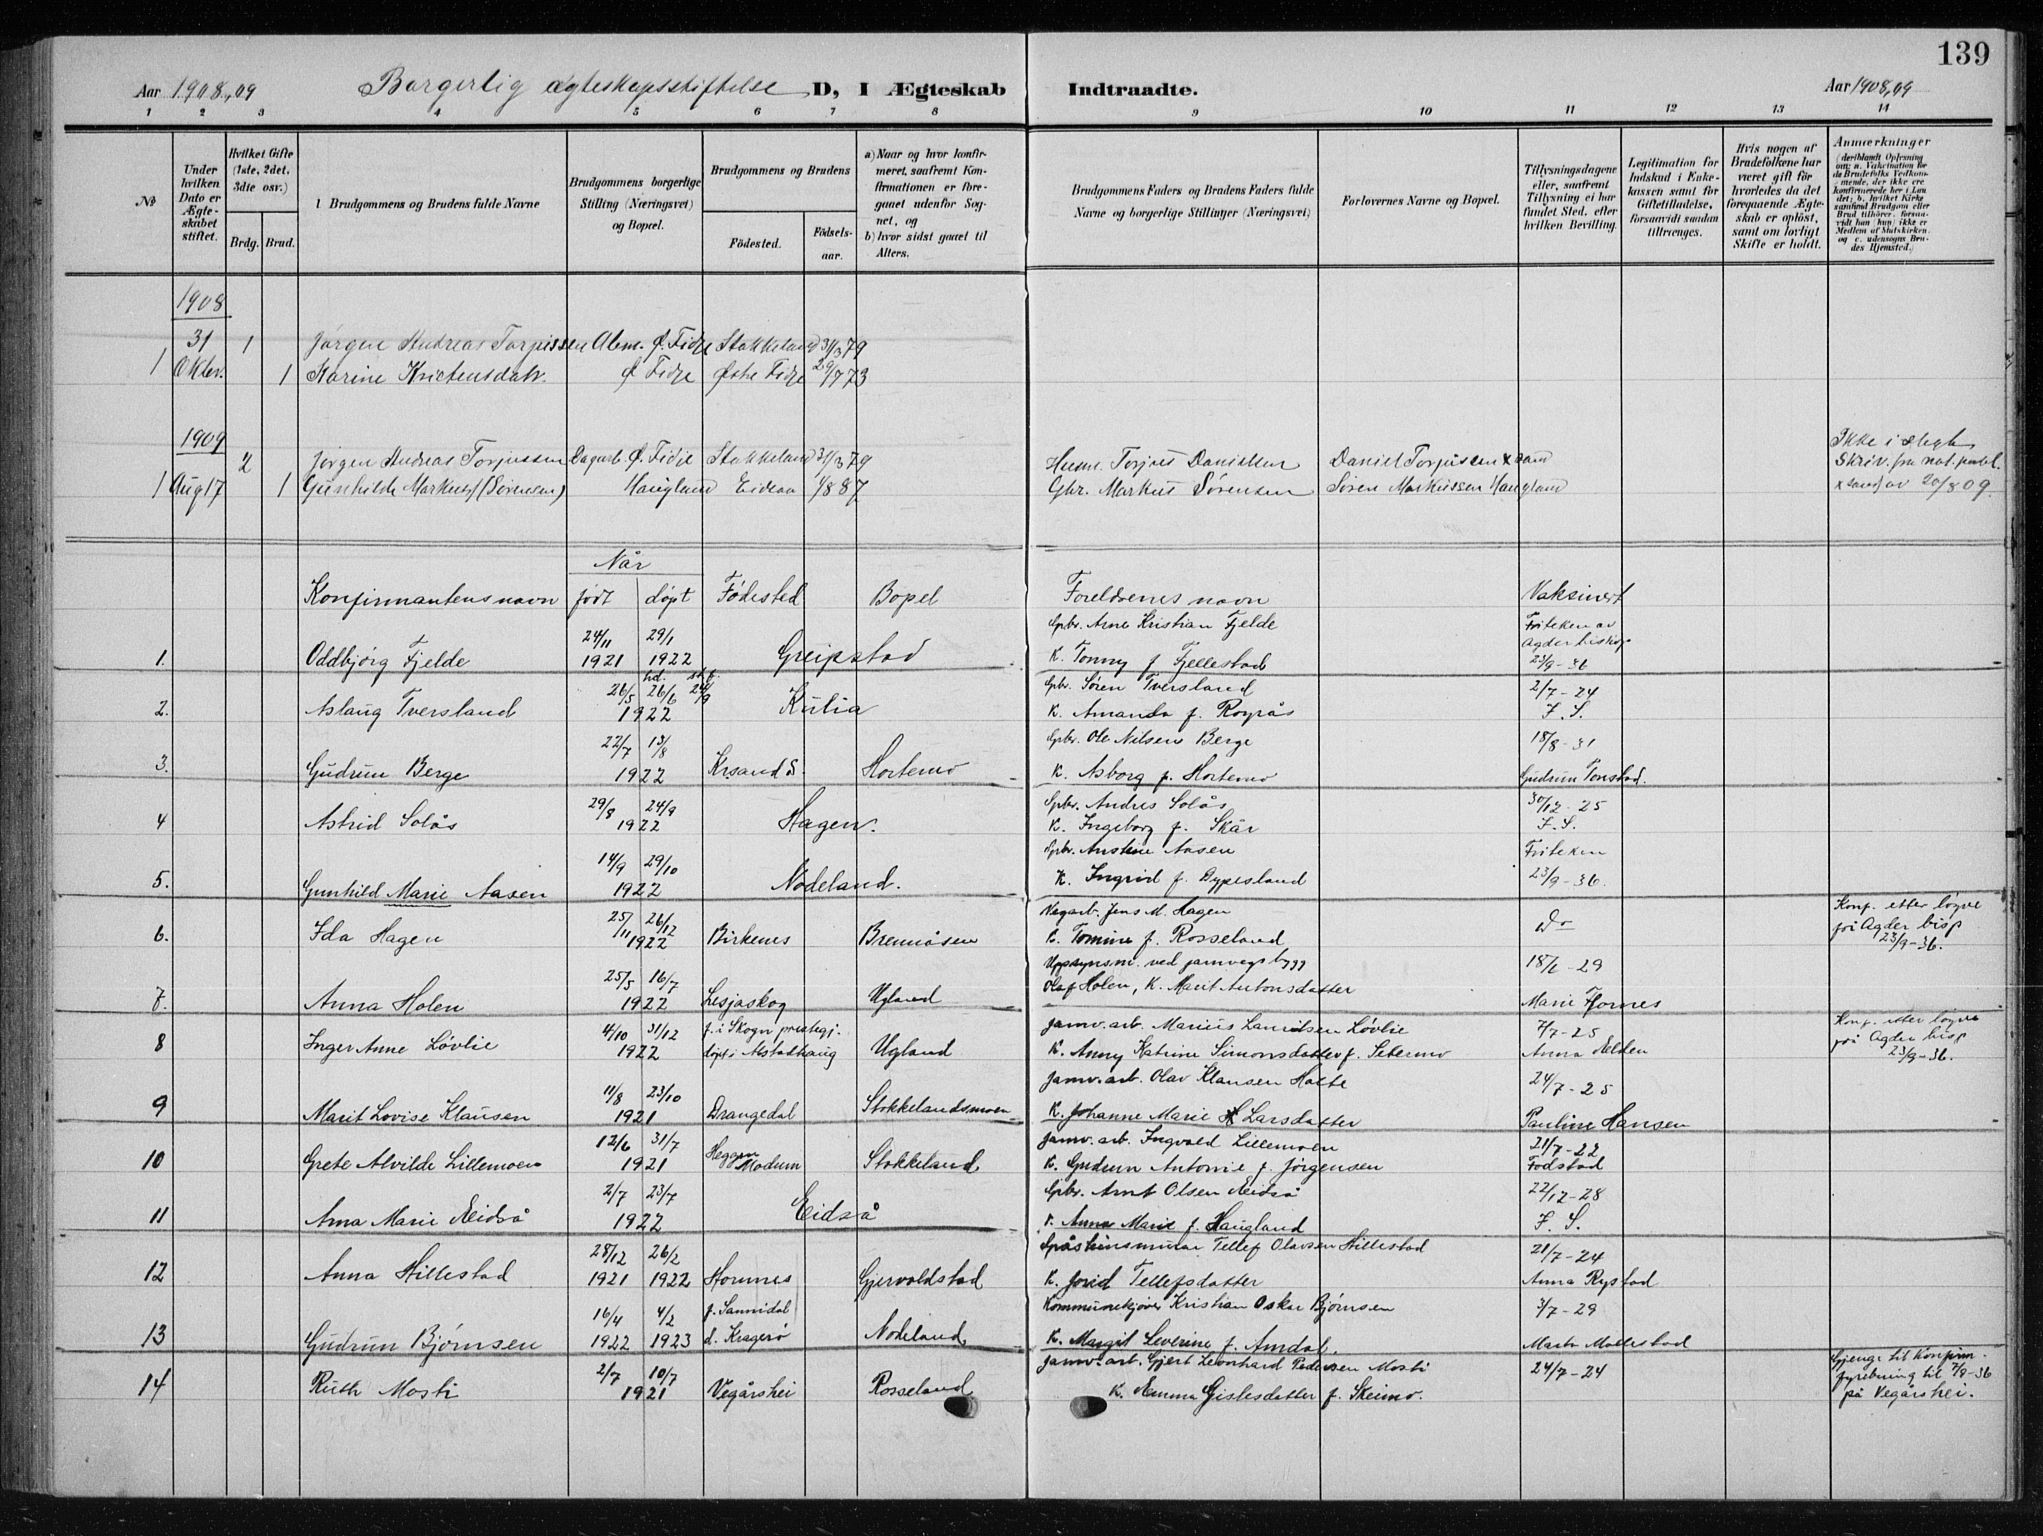 139
Aar 1908,09 Borgerlig ægteskapsstiftelse D, I Ægteskab Indtraadte. Aar 1908,09
1 2 3 4 5 6 7 8 9 10 11 12 13 14
No
Under hvilken Dato er Ægteskabet stiftet.
Hvilket Gifte (1ste, 2det, 3die osv.)
Brdg. Brud.
1 Brudgommens og Brudens fulde Navne
Brudgommens borgerlige Stilling (Næringsvei) og Bopæl.
Brudgommens og Brudens
Födested. Födselsaar.
a) Naar og hvor konfirmeret, saafremt Konfirmationen er foregaaet udenfor Sognet, og
b) hvor sidst gaaet til Alters.
Brudgommens Faders og Brudens Faders fulde Navne og borgerlige Stillinger (Næringsvei)
Forlovernes Navne og Bopæl.
Tillysningsdagene eller, saafremt Tillysning ei har fundet Sted, efter hvilken Bevilling.
Legitimation for Indskud i Enkekassen samt for Giftetilladelse, forsaavidt saadan tiltrænges.
Hvis nogen af Brudefolkene har været gift før hvorledes da det foregaaende Ægteskab er opløst, samt om lovligt Skifte er holdt.
Anmærkninger
(deriblandt Oplysning om: a. Vakcination for de Brudefolks Vedkommende, der ikke ere konfirmerede her i Landet; b. hvilket Kirkesamfund Brudgom eller Brud tilhører, forsaavidt han (hun) ikke er Medlem af Statskirken, og c. udensogns Brudes Hjemsted.)
1908
31 1 Jørgen Andreas Torjussen Ø. Fidje Stokkeland 31/3 79
1 Oktbr. 1 Karine Kristensdatr. Ø Fidje Østre Fidje 29/7 73
1909
2 Jørgen Andreas Torjussen Dagarb. Ø. Fidje Stokkeland 31/3 79 Husm. Torjus Danielsen Daniel Torjussen x sand Ikke i slegt
1 Aug 17 1 Gunhilde Markusd (Sørensen) Haugland Eidsaa 1/8 87 Gbr. Markus Sørensen Søren Markussen Haugland Skriv. fra not. publ. x sand av 20/8 09.
Når
Konfirmantens navn født døpt Fødested Bopel Foreldrenes navn Vaksinert
1. Oddbjørg Fjelde 24/11 1921 29/1 1922 Greipstad Gbr. Arne Kristian Fjelde K. Tonny f. Fjellestad Friteken av Agder biskop 23/9-36
2. Aslaug Tversland 26/5 hd. 26/6 24/9 1922 Kulia Gbr. Søren Tversland K. Amanda f. Røyrås 2/7-24 F. S.
3. Gudrun Berge 22/7 13/8 1922 Krsand S. Hortemo Gbr. Ole Nilsen Berge K. Asborg f. Hortemo 18/8-31 Gudrun Tonstad.
4 Astrid Solås 29/8 24/9 1922 Hagen. Gbr. Andres Solås K. Ingeborg f. Skår 30/12-25 F. S.
5. Gunhild Marie Aasen 14/9 29/10 1922 Nodeland. Gbr. Anstein Aasen K. Ingrid f. Dypesland Friteken 23/9-36.
6. Ida Hagen 25/11 26/12 1922 Birkenes Brennåsen Vegarb. Jens M. Hagen K. Tomine f. Rosseland Do Konf. etter løyve frå Agder bisp 23/9-36.
7. Anna Holen 25/5 16/7 1922 Lesjaskog Ugland Uppsynsm. ved jarnvegsbygg Olaf Holen, K. Marit Antonsdatter 18/6-29 Marie Fornes
8 Inger Anne Løvlie 4/10 31/12 1922 f. i Skogn prestegj. døpt i Alstadhaug Ugland Jarnv.arb. Marius Lauritsen Løvlie K. Anny Katrine Simonsdatter f. Setermo 7/7-25 Anna Melden Konf. etter løyve frå Agder bisp 23/9-36.
9 Marit Lovise Klausen 11/8 23/10 1921 Drangedal Stokkelandsmoen Jarnv.arb. Olav Klausen Holte K. Johanne Marie Larsdatter 24/7-25 Pauline Hansen
10 Grete Alvilde Lillemoen 12/6 31/7 1921 Heggen Modum Stokkeland Jarnv.arb. Ingvald Lillemoen K. Gudrun Antonie f. Jørgensen 21/7-22 Fodstad
11 Anna Marie Meidså 2/7 23/7 1922 Eidså Gbr. Arnt Olsen Meidså K. Anna Marie f. Haugland 22/12-28 F. S.
12 Anna Hillestad 28/12 1921 26/2 1922 Hornnes Gjervoldstad Gråsteinsmurar Tellef Olavsen Hillestad K. Jorid Tellefsdatter 21/7-24 Anna Rystad
13 Gudrun Bjørnsen 16/4 1922 4/2 1923 f. Sannidal d. Kragerø Nodeland Kommunekjøver Kristian Oskar Bjørnsen K. Margit Severine f. Amdal. 3/7-29 Marta Mollestad
14 Ruth Mosti 2/7 10/7 1921 Vegårshei Rosseland Jarnv.arb. Gjert Leonhard Pedersen Mosti K. Emma Gislesdatter f. Skeimo. 24/7-24 Gjenge til Konfirm. fyrebuing til 7/9-36 på Vegårshei.